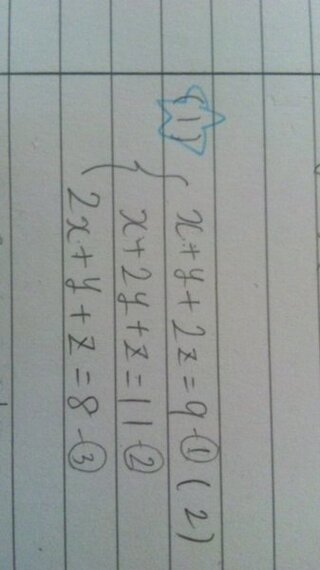 (1)
x+y+2z=9-① (2)
x+2y+z=11-②
2x+y+z=8-③